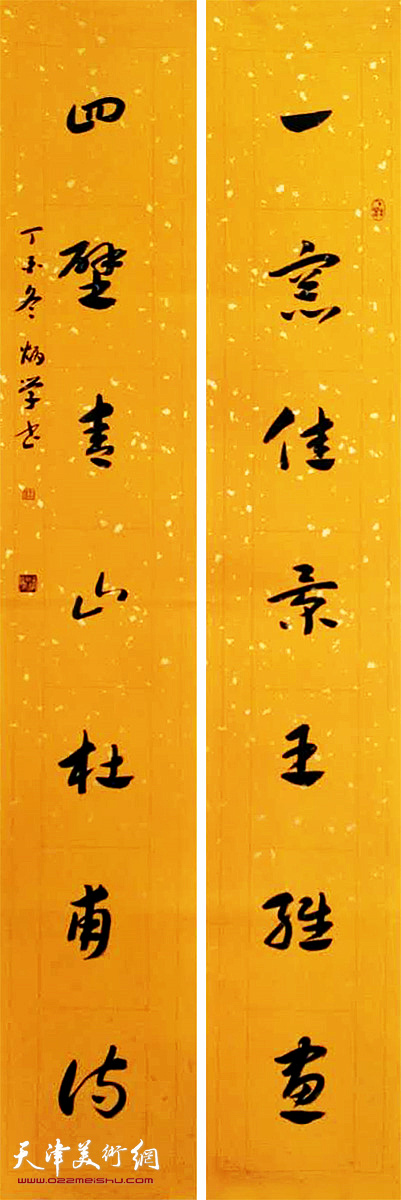 一窓佳景王维画
四壁青山杜甫诗
丁未冬 炳学书
天津美術網
www.022meishu.com